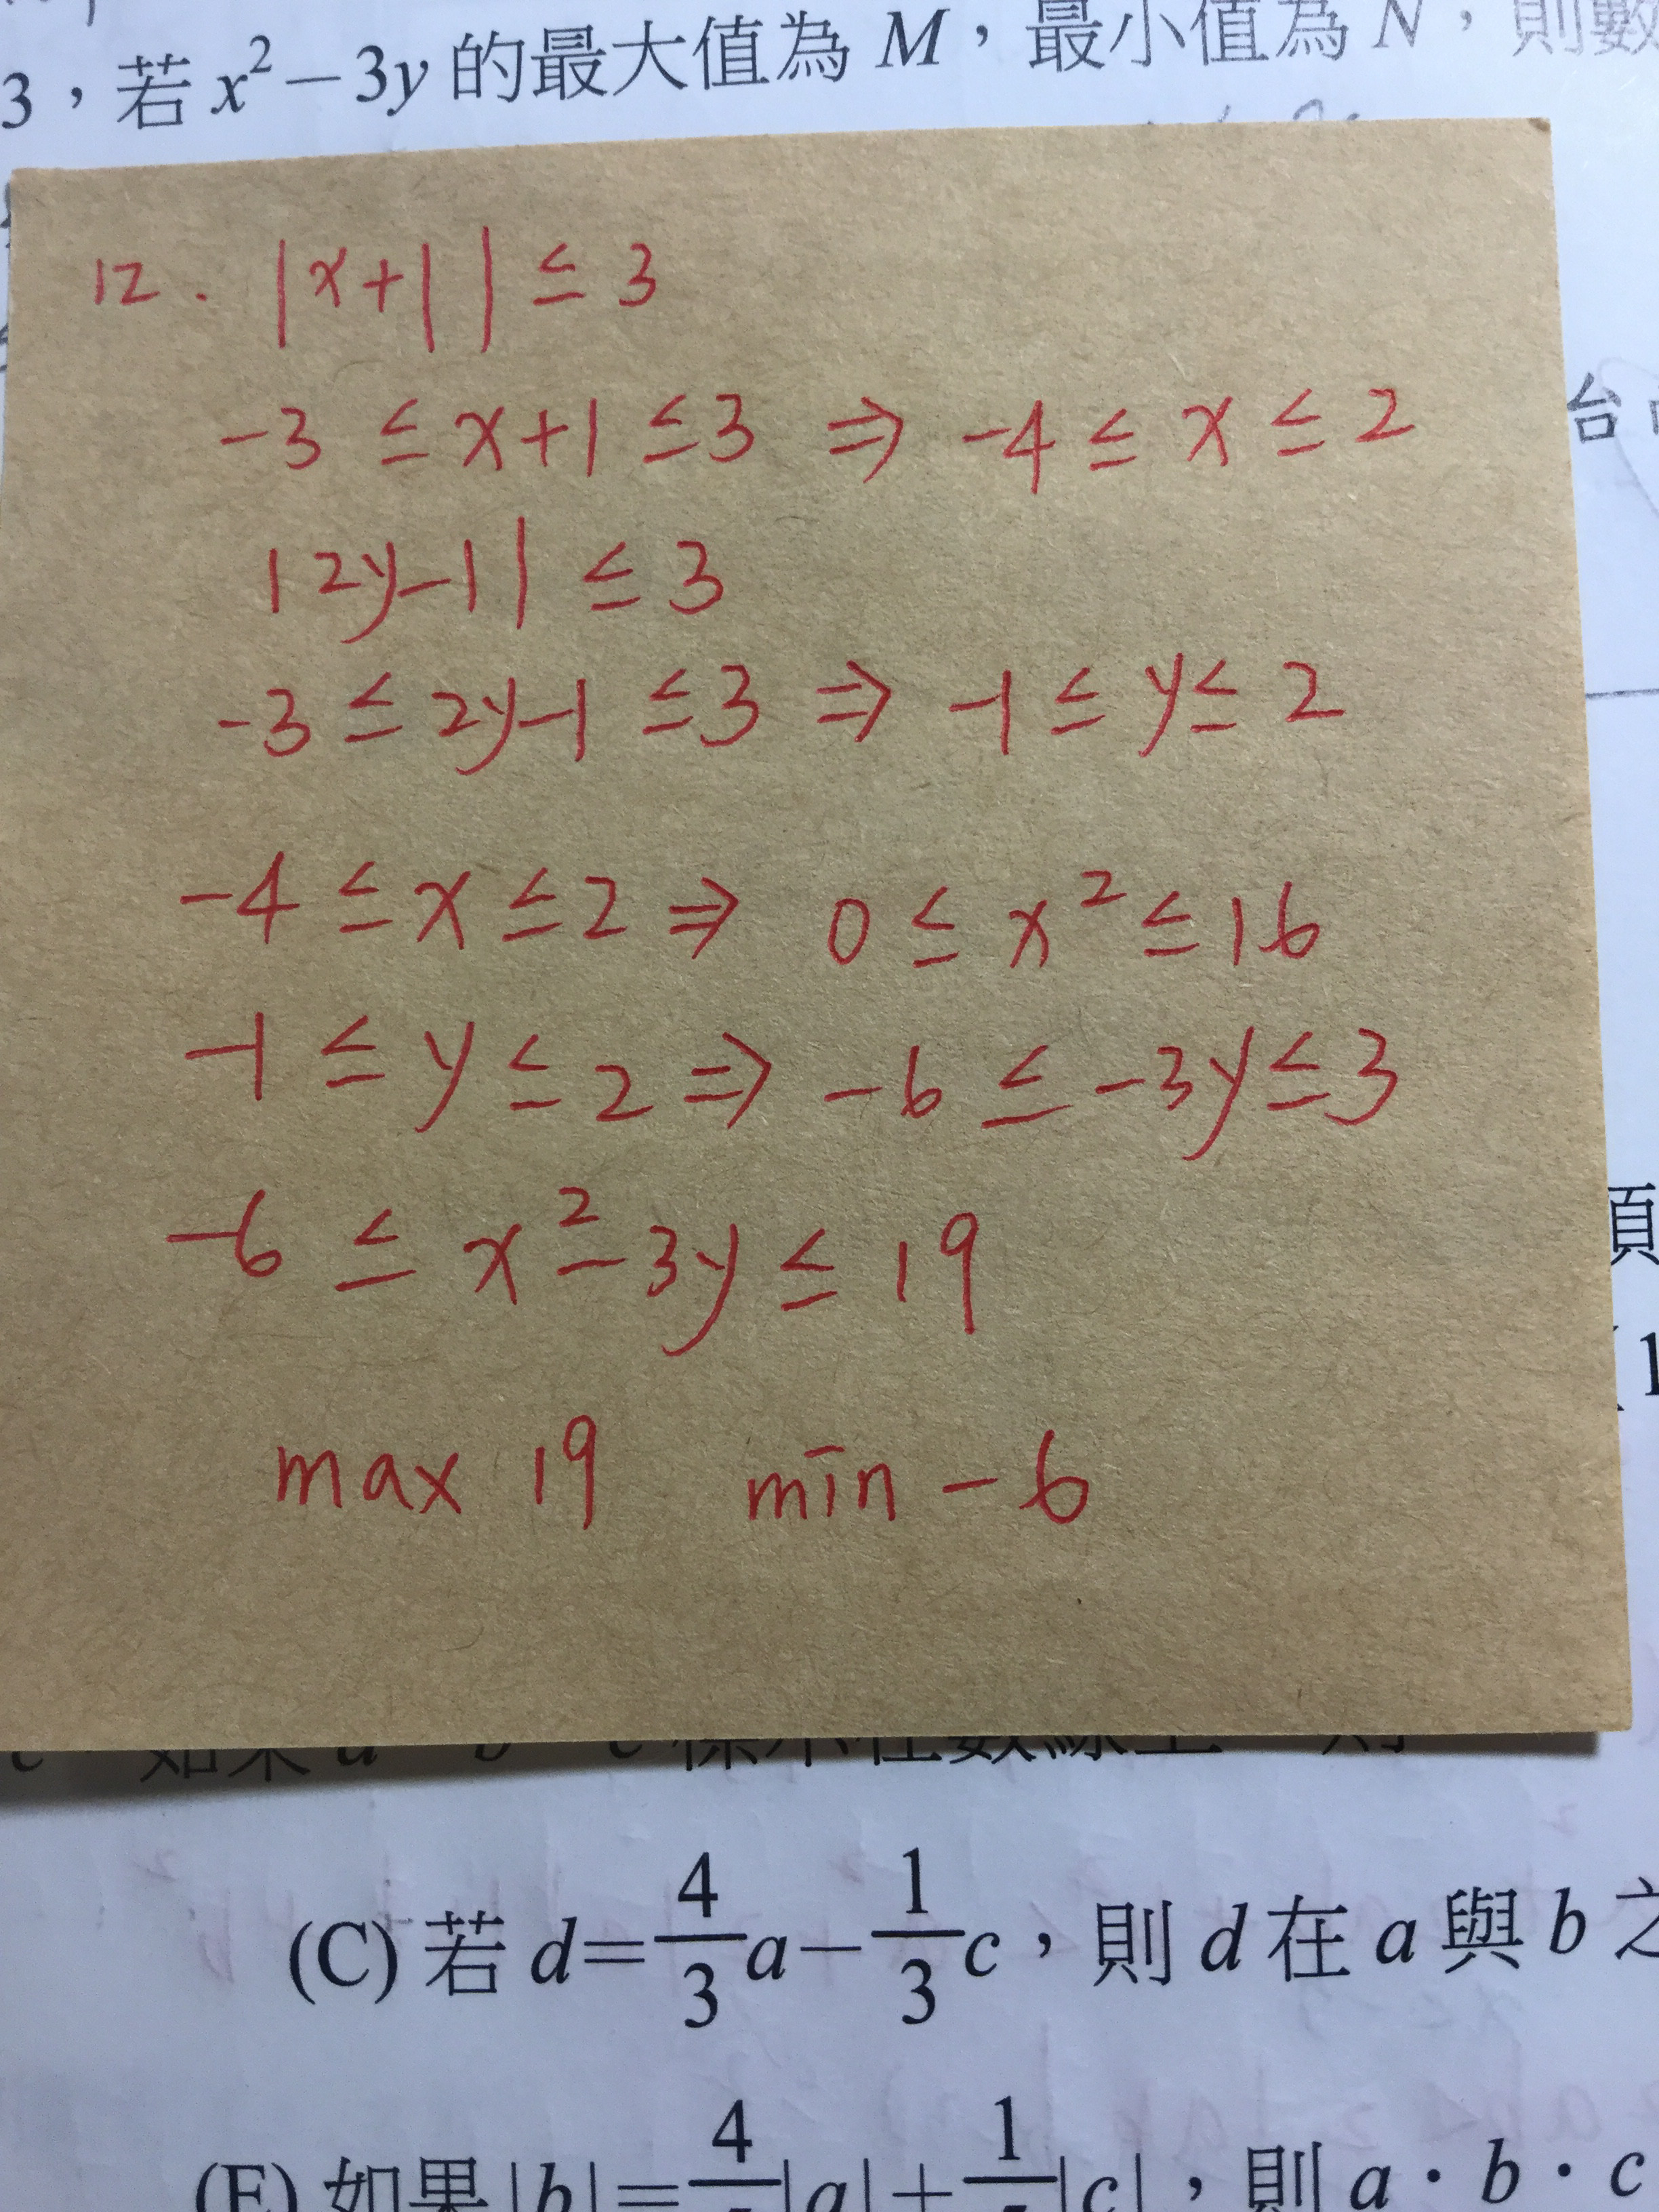 3，若 x²－3y 的最大值為 M，最小值為 N，則數
12. |x+1| ≤ 3
-3 ≤ x+1 ≤ 3 ⇒ -4 ≤ x ≤ 2
台
|2y-1| ≤ 3
-3 ≤ 2y-1 ≤ 3 ⇒ -1 ≤ y ≤ 2
-4 ≤ x ≤ 2 ⇒ 0 ≤ x² ≤ 16
-1 ≤ y ≤ 2 ⇒ -6 ≤ -3y ≤ 3
-6 ≤ x²-3y ≤ 19
(1
max 19 min -6
(C) 若 d=4/3a－1/3c，則 d 在 a 與 b 之
(E) 如果 |b|=|a|+|c|，則 a·b·c